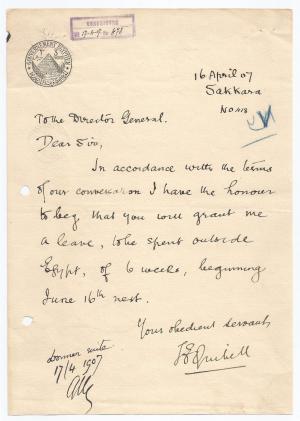 REGISTERED
17-4-07 No 878
16 April 07
Sakkara
No 113
To the Director General.
Dear Sir,
In accordance with the terms
of our conversation I have the honour
to beg that you will grant me
a leave, to be spent outside
Egypt, of 6 weeks, beginning
June 16th next.
Your obedient servant
J E Quibell
donner suite
17/4 1907